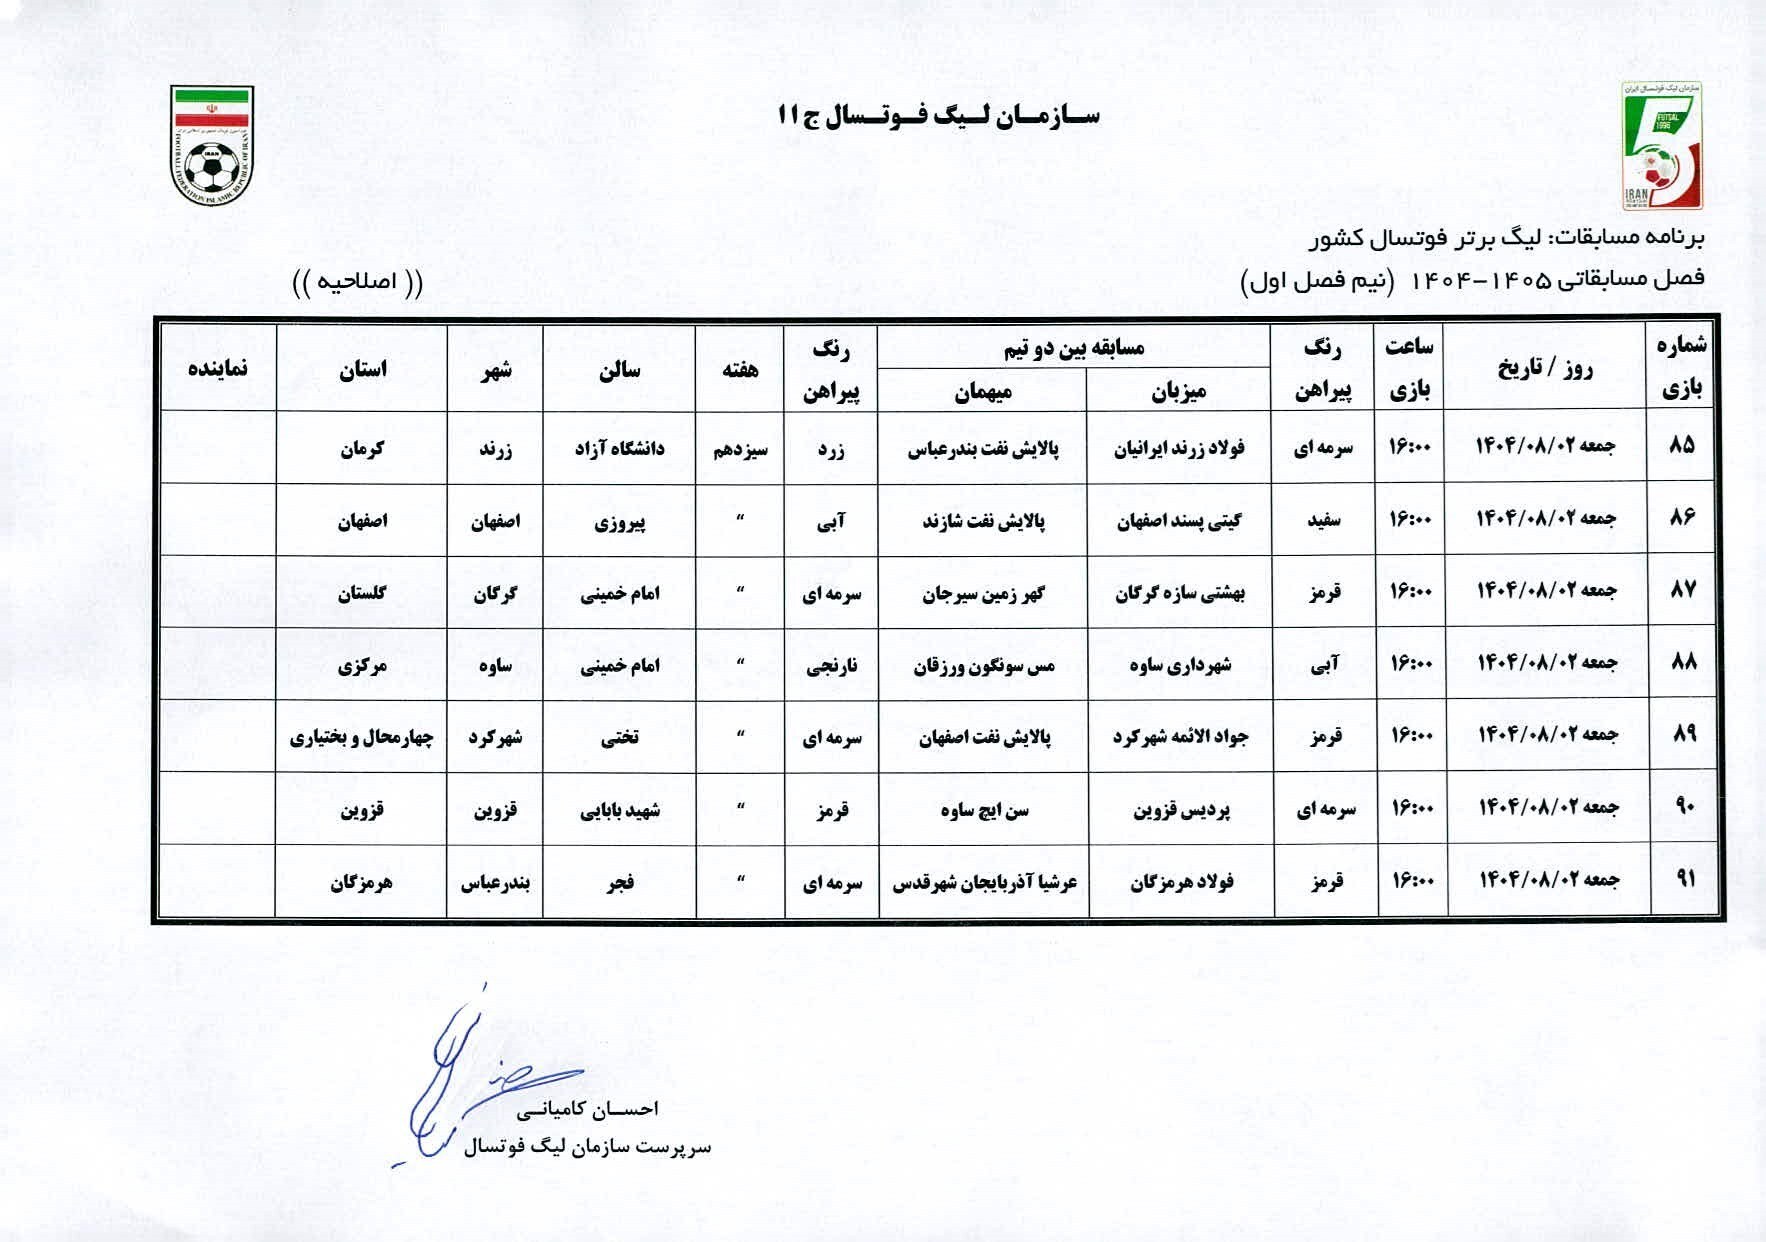 سازمان لیگ فوتسال ج ا ا
سازمان لیگ فوتسال ایران
FUTSAL
1996
IRAN
FOOTBALL FEDERATION ISLAMIC REPUBLIC OF IRAN
IRAN
برنامه مسابقات: لیگ برتر فوتسال کشور
فصل مسابقاتی ۱۴۰۵-۱۴۰۴ (نیم فصل اول)
(( اصلاحیه ))
شماره بازی | روز / تاریخ | ساعت بازی | رنگ پیراهن | مسابقه بین دو تیم | رنگ پیراهن | هفته | سالن | شهر | استان | نماینده
میزبان | میهمان
۸۵ | جمعه ۱۴۰۴/۰۸/۰۲ | ۱۶:۰۰ | سرمه ای | فولاد زرند ایرانیان | پالایش نفت بندرعباس | زرد | سیزدهم | دانشگاه آزاد | زرند | کرمان
۸۶ | جمعه ۱۴۰۴/۰۸/۰۲ | ۱۶:۰۰ | سفید | گیتی پسند اصفهان | پالایش نفت شازند | آبی | “ | پیروزی | اصفهان | اصفهان
۸۷ | جمعه ۱۴۰۴/۰۸/۰۲ | ۱۶:۰۰ | قرمز | بهشتی سازه گرگان | گهر زمین سیرجان | سرمه ای | “ | امام خمینی | گرگان | گلستان
۸۸ | جمعه ۱۴۰۴/۰۸/۰۲ | ۱۶:۰۰ | آبی | شهرداری ساوه | مس سونگون ورزقان | نارنجی | “ | امام خمینی | ساوه | مرکزی
۸۹ | جمعه ۱۴۰۴/۰۸/۰۲ | ۱۶:۰۰ | قرمز | جواد الائمه شهرکرد | پالایش نفت اصفهان | سرمه ای | “ | تختی | شهرکرد | چهارمحال و بختیاری
۹۰ | جمعه ۱۴۰۴/۰۸/۰۲ | ۱۶:۰۰ | سرمه ای | پردیس قزوین | سن ایچ ساوه | قرمز | “ | شهید بابایی | قزوین | قزوین
۹۱ | جمعه ۱۴۰۴/۰۸/۰۲ | ۱۶:۰۰ | قرمز | فولاد هرمزگان | عرشیا آذربایجان شهرقدس | سرمه ای | “ | فجر | بندرعباس | هرمزگان
احسان کامیانی
سرپرست سازمان لیگ فوتسال